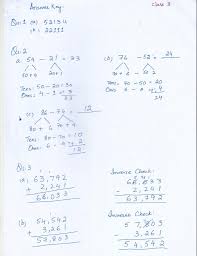 Answer Key
Class 3
Qu:1 (a) 52134
(b) 22111
Qu:2
a. 54 - 31 = 23
50+4
30+1
Tens: 50-30=20
Ones: 4-1=
(b) 76 - 52 = 24
70+6
50+2
Tens: 70-50=20
Ones:
(c)
12
80+
70+
Tens: 80-70=10
Ones:
12
Qu:3
(a) 63,792
+ 2,241
66,033
Inverse Check:
66,033
- 2,241
63,792
(b) 54,542
+ 3,261
57,803
Inverse Check:
57,803
- 3,261
54,542